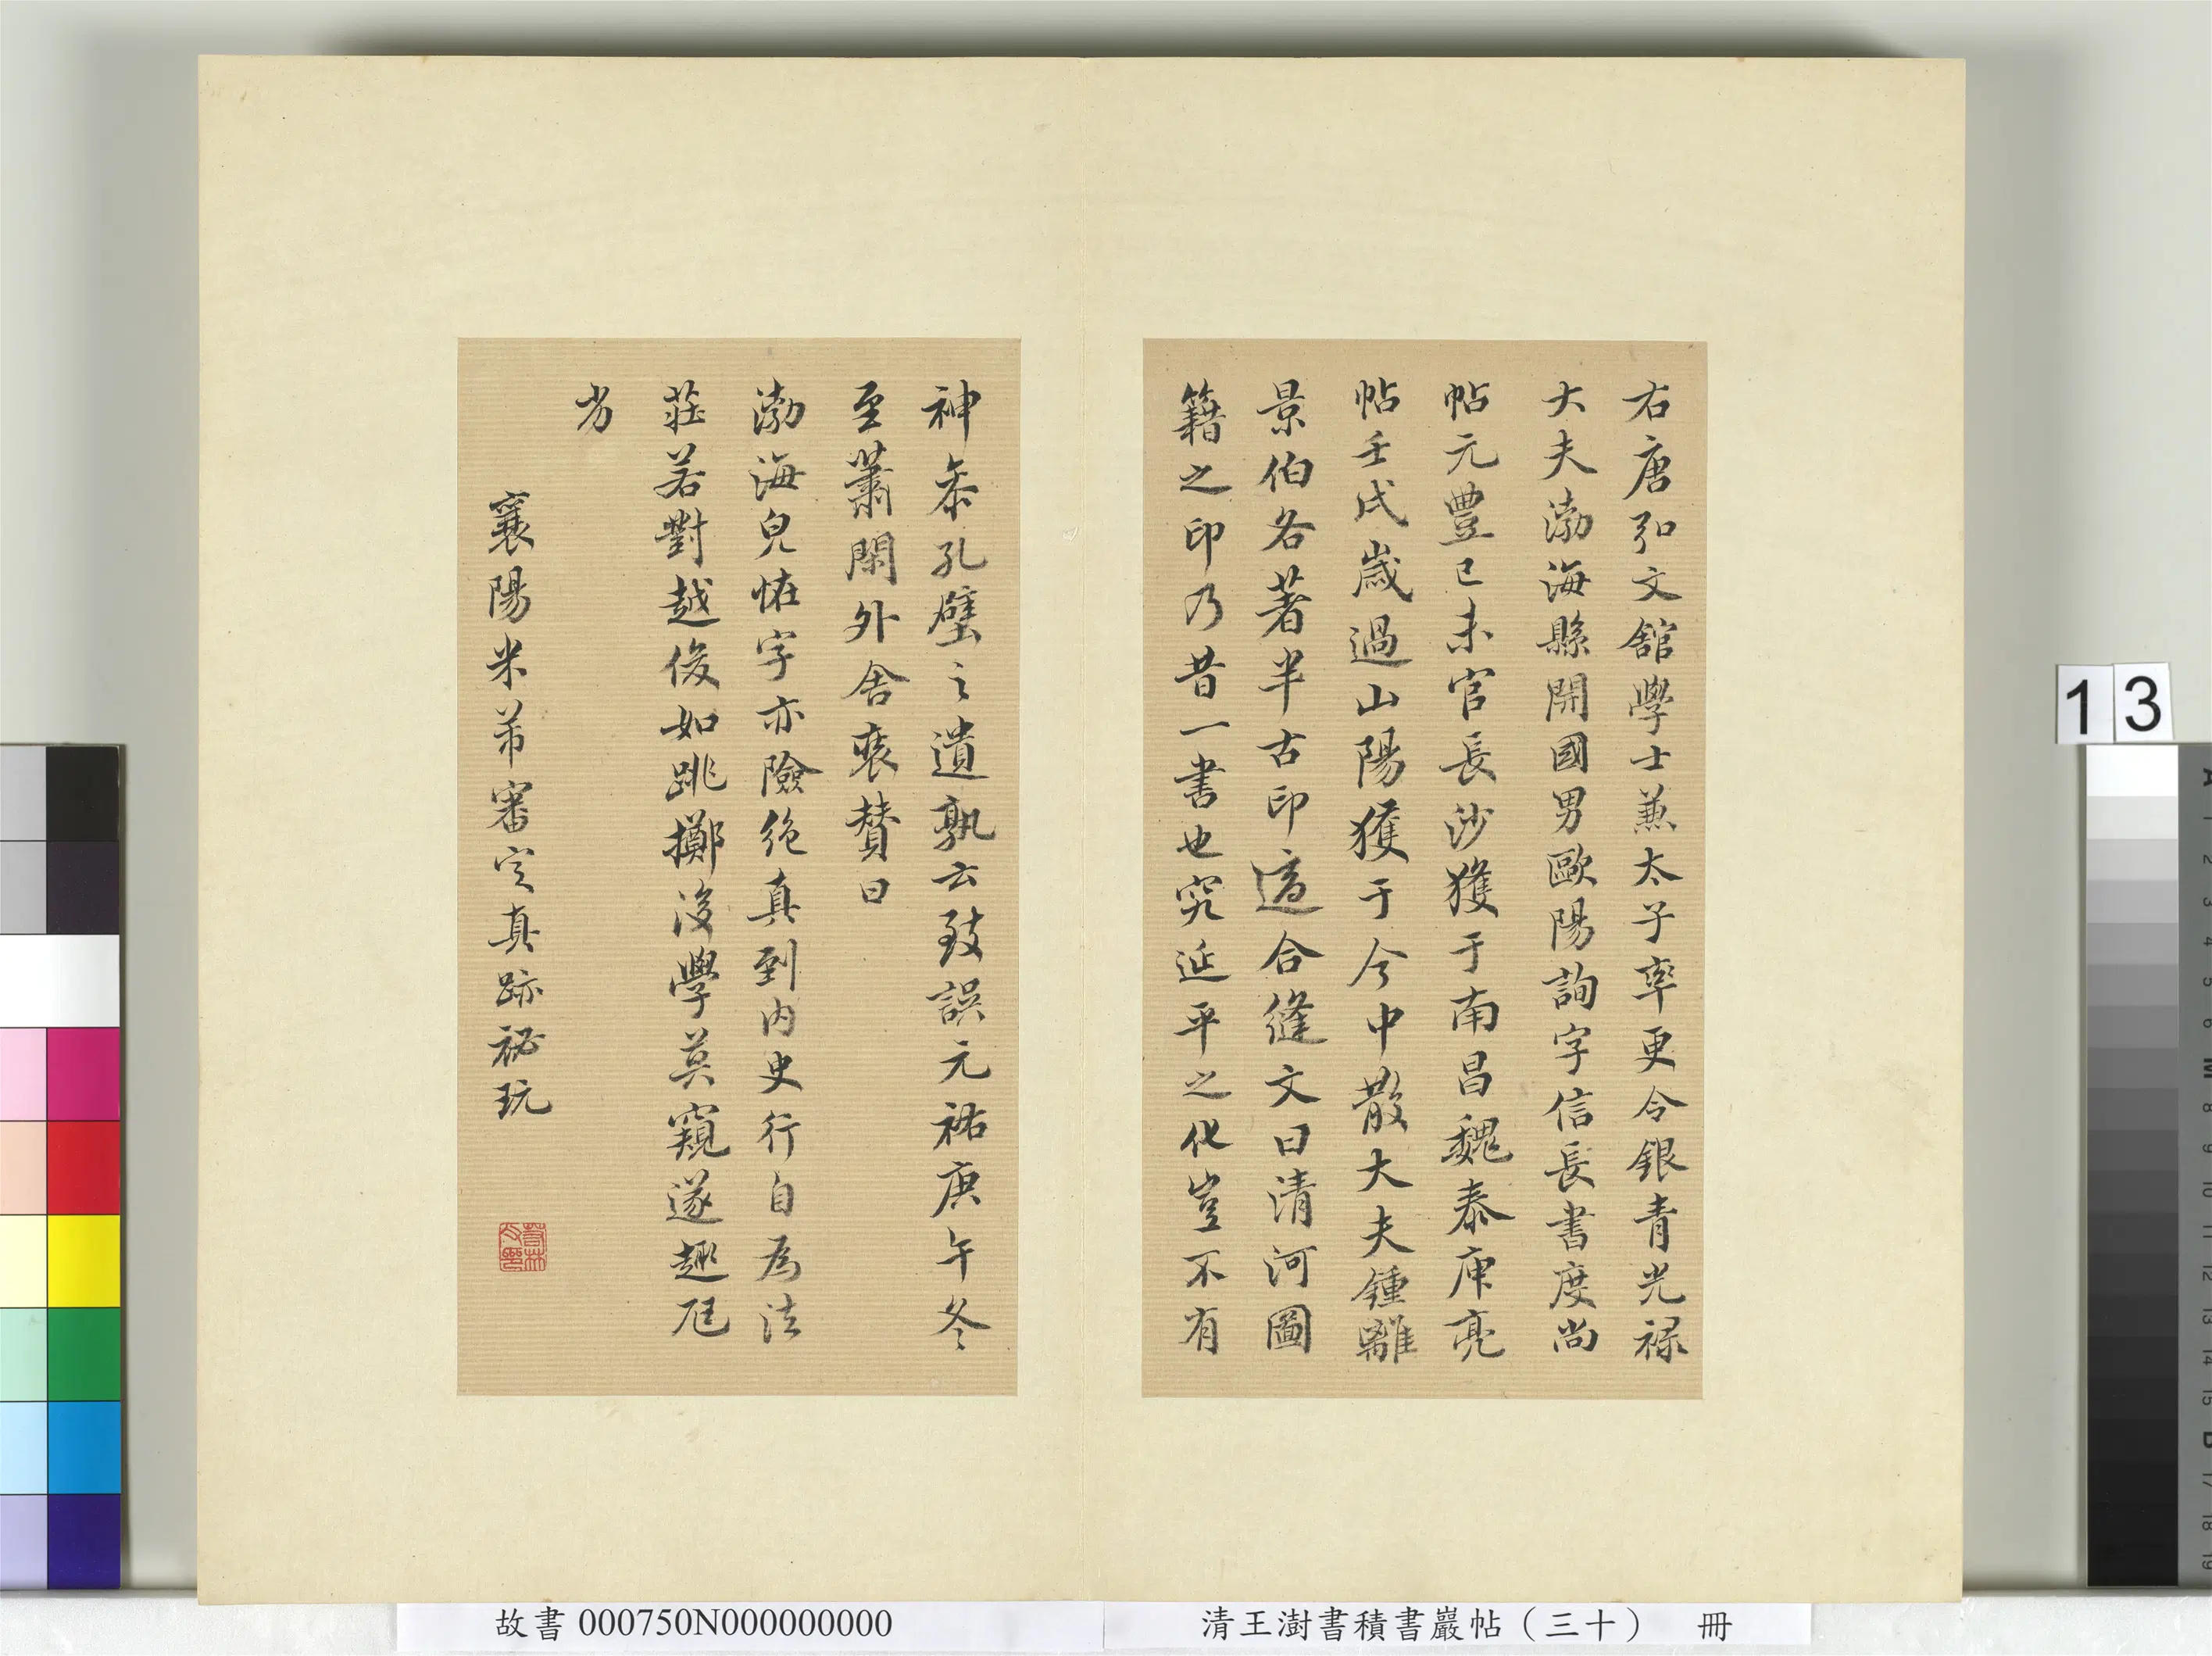 右唐弘文館學士兼太子率更令銀青光祿
大夫渤海縣開國男歐陽詢字信長書度尚
帖元豐己未官長沙獲于南昌魏泰庾亮
帖壬戌歲過山陽獲于今中散大夫鍾離
景伯各著半古印適合縫文曰清河圖
籍之印乃昔一書也究延平之化豈不有
神泰孔壁之遺孰云致誤元祐庚午冬
至蕭閑外舍裝贊曰
渤海皃恠字亦險絕真到內史行自為法
莊若對越俊如跳擲後學莫窺遂趣尫
劣
襄陽米芾審定真跡祕玩
13
故書 000750N000000000
清王澍書積書巖帖（三十） 冊